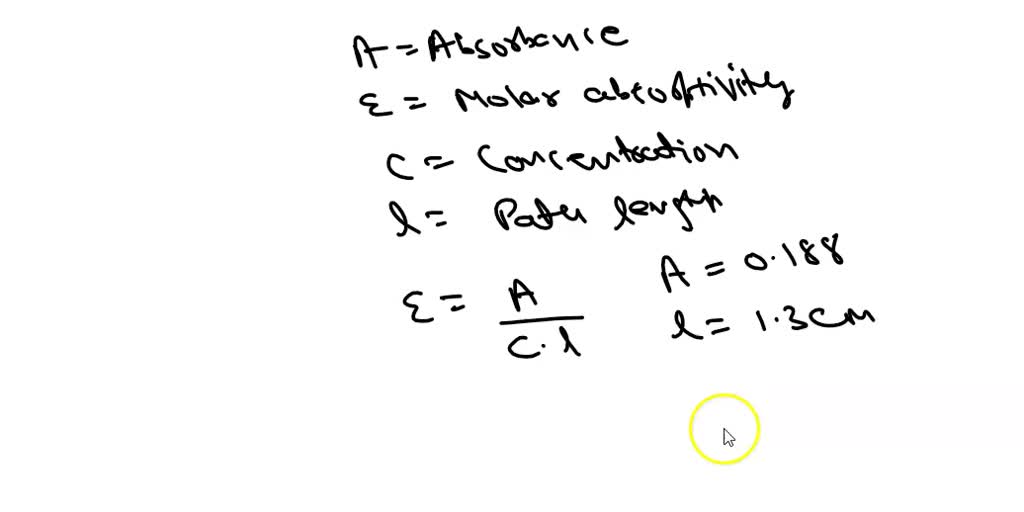 A = Absorbance
ε = Molar absorptivity
C = Concentration
l = Path length
ε = A / C · l
A = 0.188
l = 1.3 cm